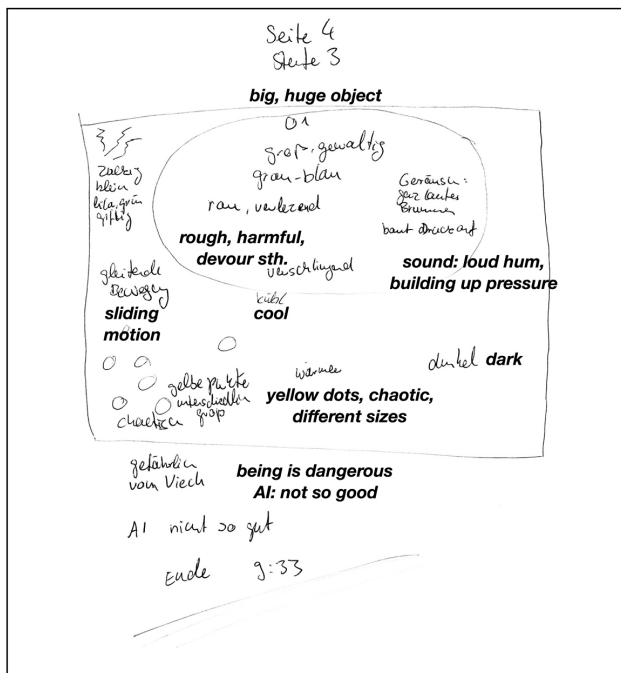 Seite 4
Stufe 3
big, huge object
O1
groß, gewaltig
grau-blau
rau, verletzend
zackig
klein
lila, grün
giftig
Geräusch:
ganz lautes
Brummen
baut Druck auf
rough, harmful,
devour sth.
verschlingend
sound: loud hum,
building up pressure
gleitende
Bewegung
sliding
motion
kühl
cool
dunkel dark
wärmer
gelbe Punkte
unterschiedlich
groß
chaotisch
yellow dots, chaotic,
different sizes
gefährlich
vom Viech
being is dangerous
AI: not so good
AI nicht so gut
Ende 9:33